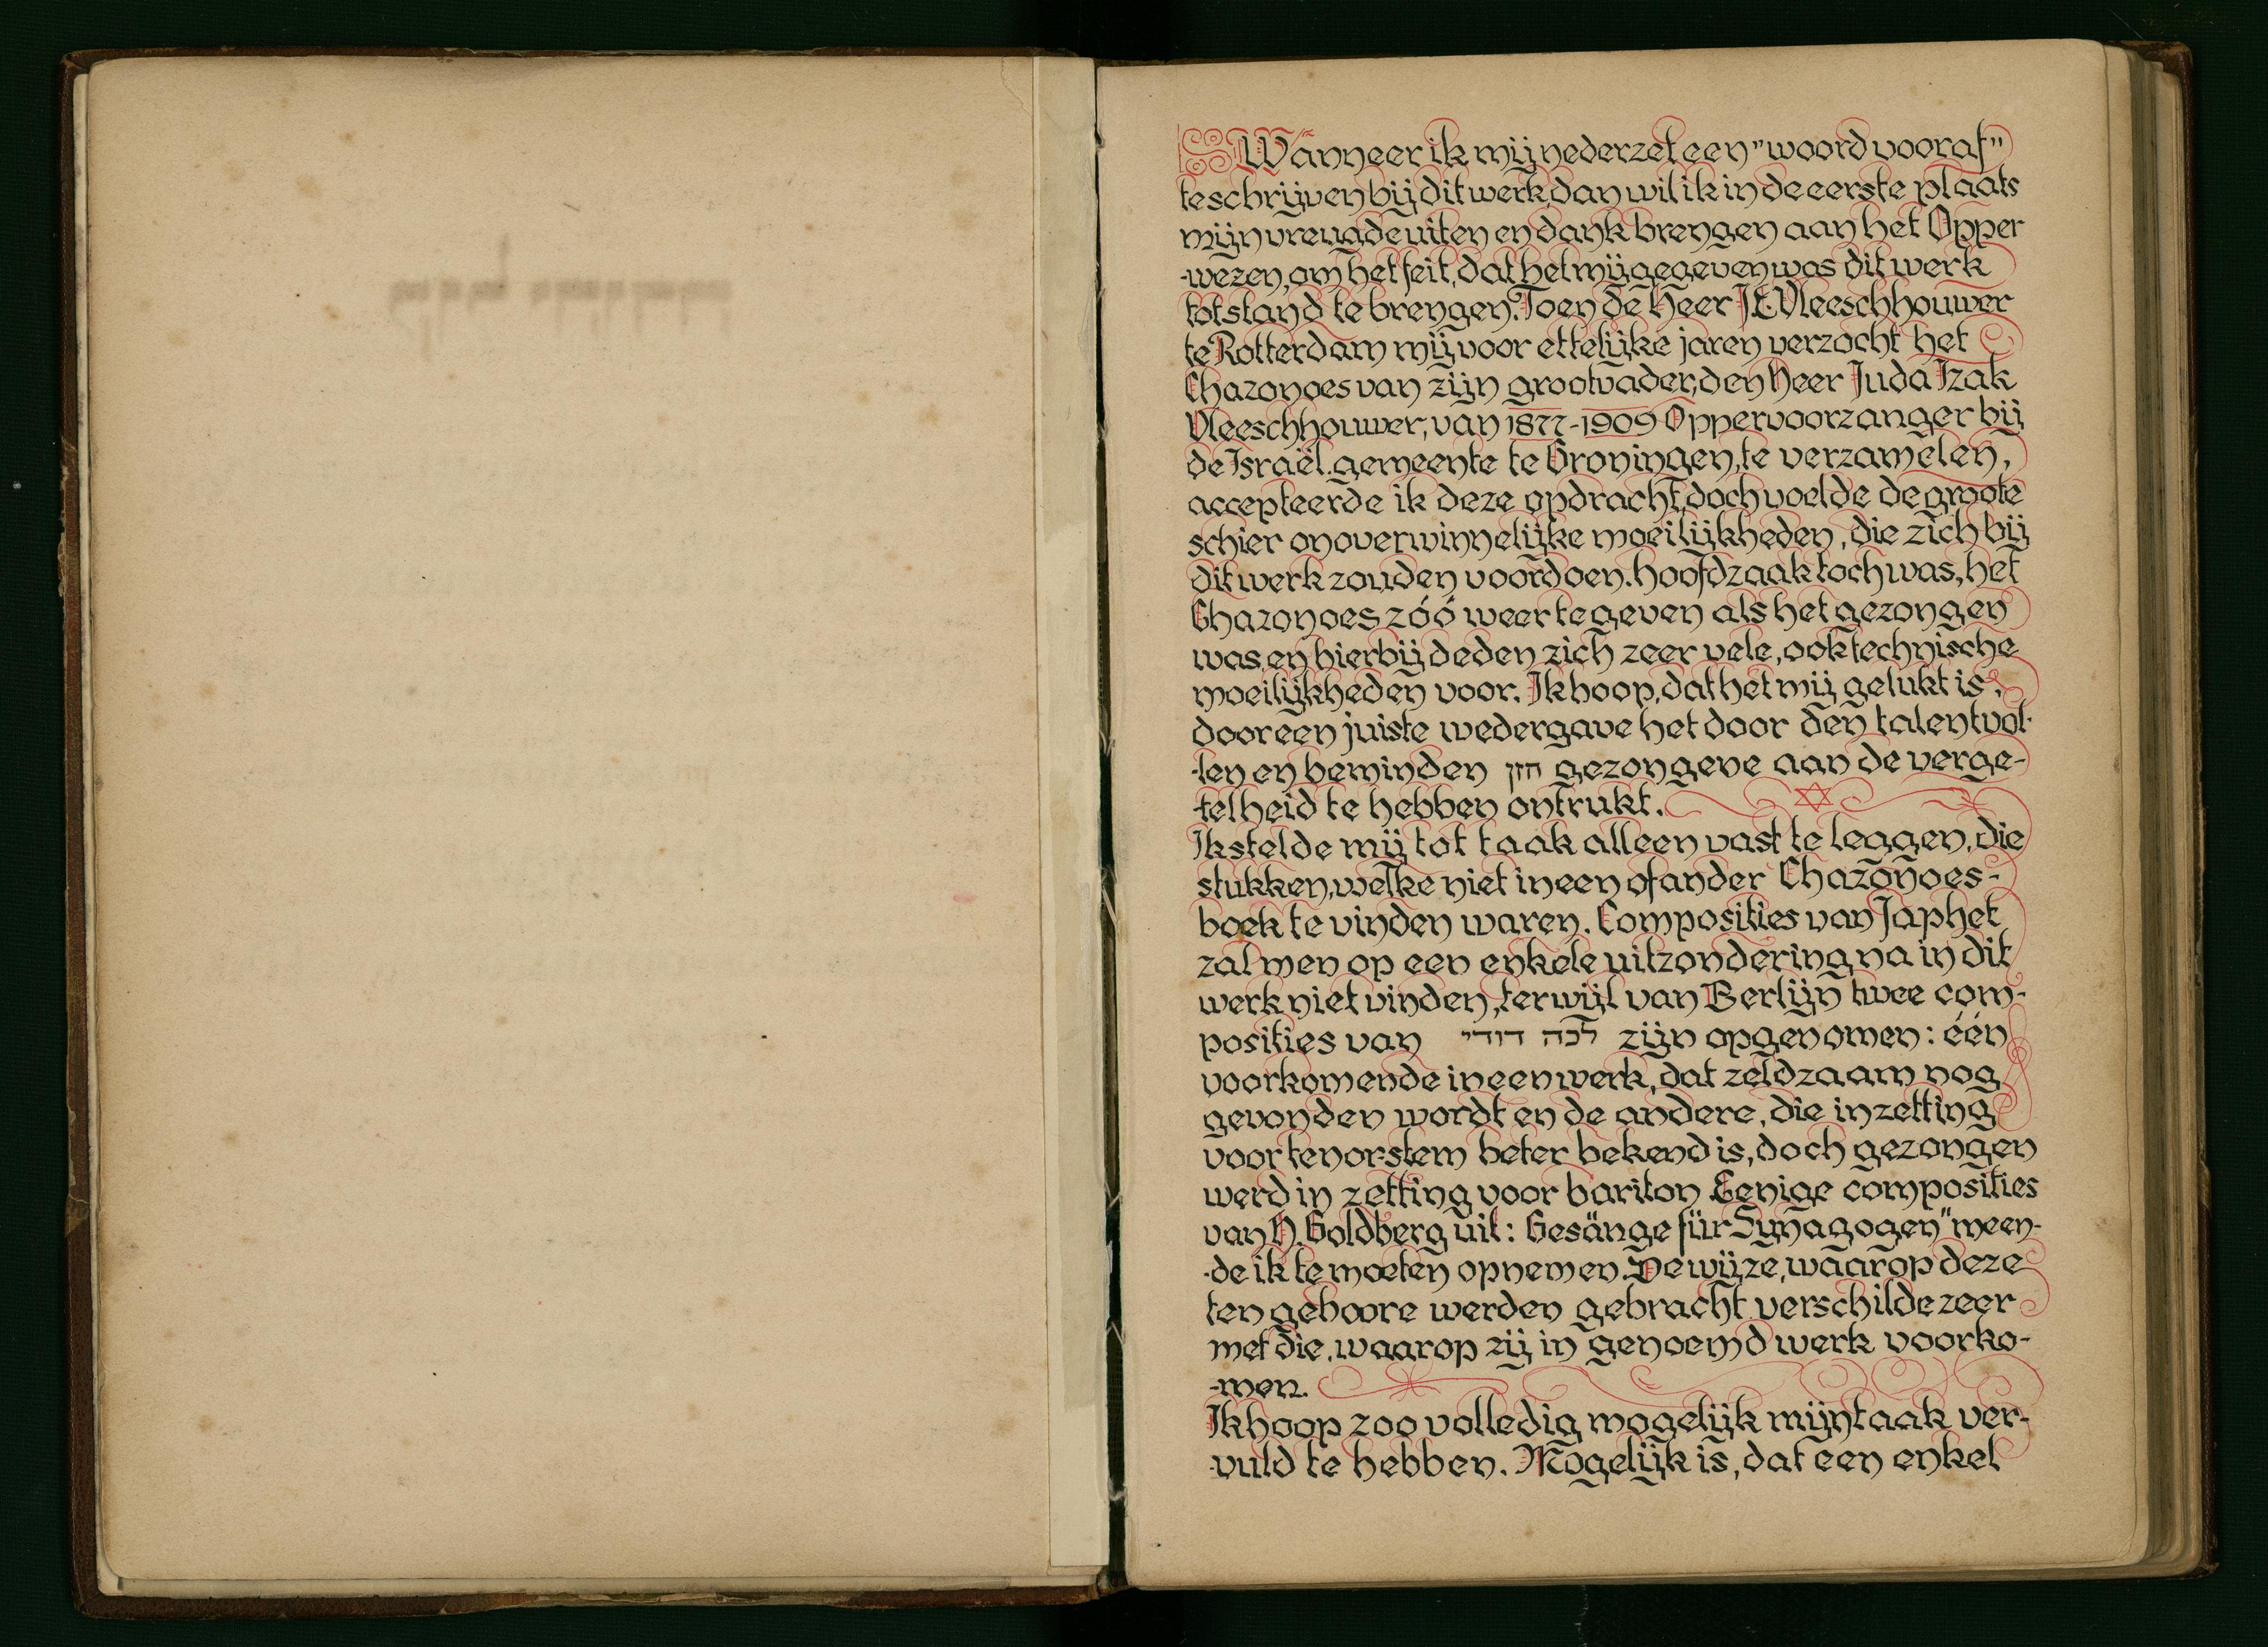 Wanneer ik mij nederzet een "woord vooraf"
te schrijven bij dit werk, dan wil ik in de eerste plaats
mijn vreugde uiten en dank brengen aan het Opper
-wezen, om het feit, dat het mij gegeven was dit werk
tot stand te brengen. Toen de Heer Vleeschhouwer
te Rotterdam mij voor ettelijke jaren verzocht het
Chazonoes van zijn grootvader, den Heer Juda Izak
Vleeschhouwer, van 1877-1909 Oppervoorzanger bij
de Israël. gemeente te Groningen, te verzamelen,
accepteerde ik deze opdracht, doch voelde de groote
schier onoverwinnelijke moeilijkheden, die zich bij
dit werk zouden voordoen. Hoofdzaak toch was, het
Chazonoes zóó weer te geven als het gezongen
was, en hierbij deden zich zeer vele, ook technische
moeilijkheden voor. Ik hoop, dat het mij gelukt is,
door een juiste wedergave het door den talentvol-
-len en beminden חזן gezongene aan de verge-
-telheid te hebben ontrukt.
Ik stelde mij tot taak alleen vast te leggen, die
stukken, welke niet in een of ander Chazonoes-
boek te vinden waren. Composities van Japhet
zal men op een enkele uitzondering na in dit
werk niet vinden, terwijl van Berlijn twee com-
posities van לכה דודי zijn opgenomen: één
voorkomende in een werk, dat zeldzaam nog
gevonden wordt en de andere, die in zetting
voor tenor-stem beter bekend is, doch gezongen
werd in zetting voor bariton. Eenige composities
van H. Goldberg uit: Gesänge für Synagogen" meen-
-de ik te moeten opnemen. De wijze, waarop deze
ten gehoore werden gebracht verschilde zeer
met die, waarop zij in genoemd werk voorko-
-men.
Ik hoop zoo volledig mogelijk mijn taak ver-
-vuld te hebben. Mogelijk is, dat een enkel